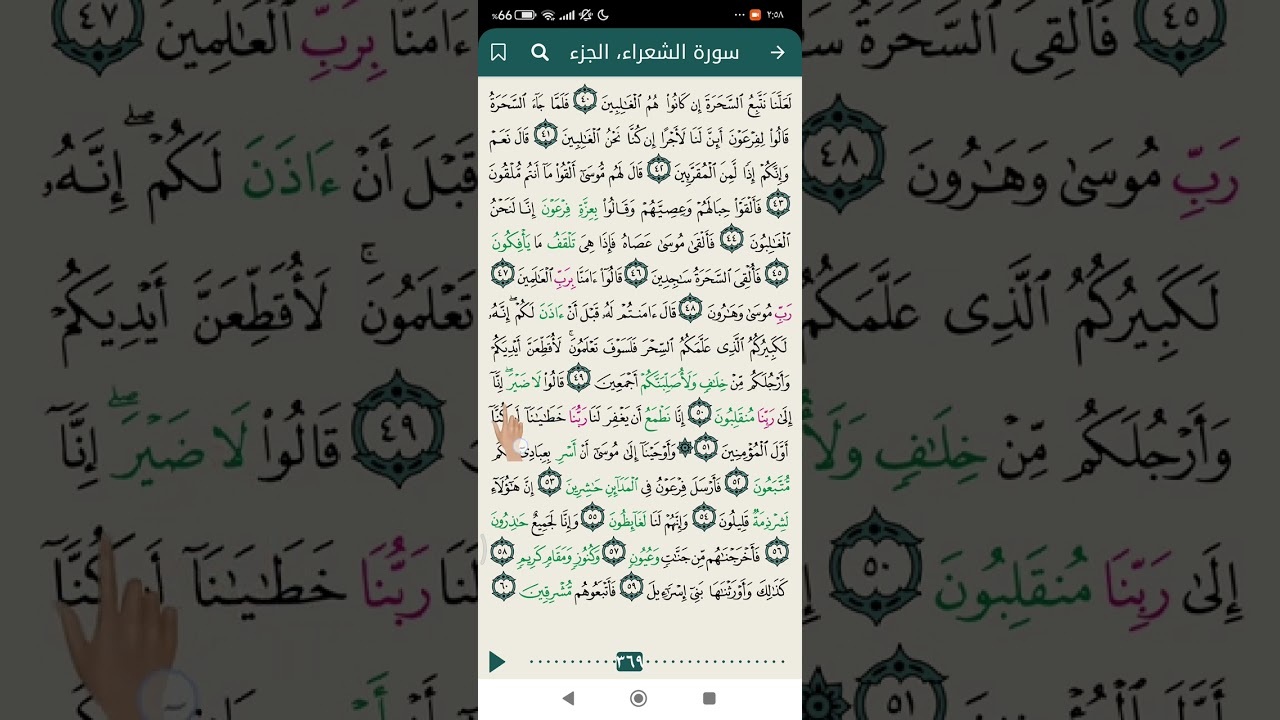 %66
٢:٥٨
سورة الشعراء، الجزء
لَعَلَّنَا نَتَّبِعُ ٱلسَّحَرَةَ إِن كَانُوا۟ هُمُ ٱلْغَـٰلِبِينَ ٤٠ فَلَمَّا جَآءَ ٱلسَّحَرَةُ
قَالُوا۟ لِفِرْعَوْنَ أَئِنَّ لَنَا لَأَجْرًا إِن كُنَّا نَحْنُ ٱلْغَـٰلِبِينَ ٤١ قَالَ نَعَمْ
وَإِنَّكُمْ إِذًا لَّمِنَ ٱلْمُقَرَّبِينَ ٤٢ قَالَ لَهُم مُّوسَىٰٓ أَلْقُوا۟ مَآ أَنتُم مُّلْقُونَ
٤٣ فَأَلْقَوْا۟ حِبَالَهُمْ وَعِصِيَّهُمْ وَقَالُوا۟ بِعِزَّةِ فِرْعَوْنَ إِنَّا لَنَحْنُ
ٱلْغَـٰلِبُونَ ٤٤ فَأَلْقَىٰ مُوسَىٰ عَصَاهُ فَإِذَا هِىَ تَلْقَفُ مَا يَأْفِكُونَ
٤٥ فَأُلْقِىَ ٱلسَّحَرَةُ سَـٰجِدِينَ ٤٦ قَالُوٓا۟ ءَامَنَّا بِرَبِّ ٱلْعَـٰلَمِينَ ٤٧
رَبِّ مُوسَىٰ وَهَـٰرُونَ ٤٨ قَالَ ءَامَنتُمْ لَهُۥ قَبْلَ أَنْ ءَاذَنَ لَكُمْ ۖ إِنَّهُۥ
لَكَبِيرُكُمُ ٱلَّذِى عَلَّمَكُمُ ٱلسِّحْرَ فَلَسَوْفَ تَعْلَمُونَ ۚ لَأُقَطِّعَنَّ أَيْدِيَكُمْ
وَأَرْجُلَكُم مِّنْ خِلَـٰفٍ وَلَأُصَلِّبَنَّكُمْ أَجْمَعِينَ ٤٩ قَالُوا۟ لَا ضَيْرَ ۖ إِنَّآ
إِلَىٰ رَبِّنَا مُنقَلِبُونَ ٥٠ إِنَّا نَطْمَعُ أَن يَغْفِرَ لَنَا رَبُّنَا خَطَـٰيَـٰنَآ أَن كُنَّآ
أَوَّلَ ٱلْمُؤْمِنِينَ ٥١ ۞ وَأَوْحَيْنَآ إِلَىٰ مُوسَىٰٓ أَنْ أَسْرِ بِعِبَادِىٓ
مُّتَّبَعُونَ ٥٢ فَأَرْسَلَ فِرْعَوْنُ فِى ٱلْمَدَآئِنِ حَـٰشِرِينَ ٥٣ إِنَّ هَـٰٓؤُلَآءِ
لَشِرْذِمَةٌ قَلِيلُونَ ٥٤ وَإِنَّهُمْ لَنَا لَغَآئِظُونَ ٥٥ وَإِنَّا لَجَمِيعٌ حَـٰذِرُونَ
٥٦ فَأَخْرَجْنَـٰهُم مِّن جَنَّـٰتٍ وَعُيُونٍ ٥٧ وَكُنُوزٍ وَمَقَامٍ كَرِيمٍ ٥٨
كَذَٰلِكَ وَأَوْرَثْنَـٰهَا بَنِىٓ إِسْرَٰٓءِيلَ ٥٩ فَأَتْبَعُوهُم مُّشْرِقِينَ ٦٠
٣٦٩